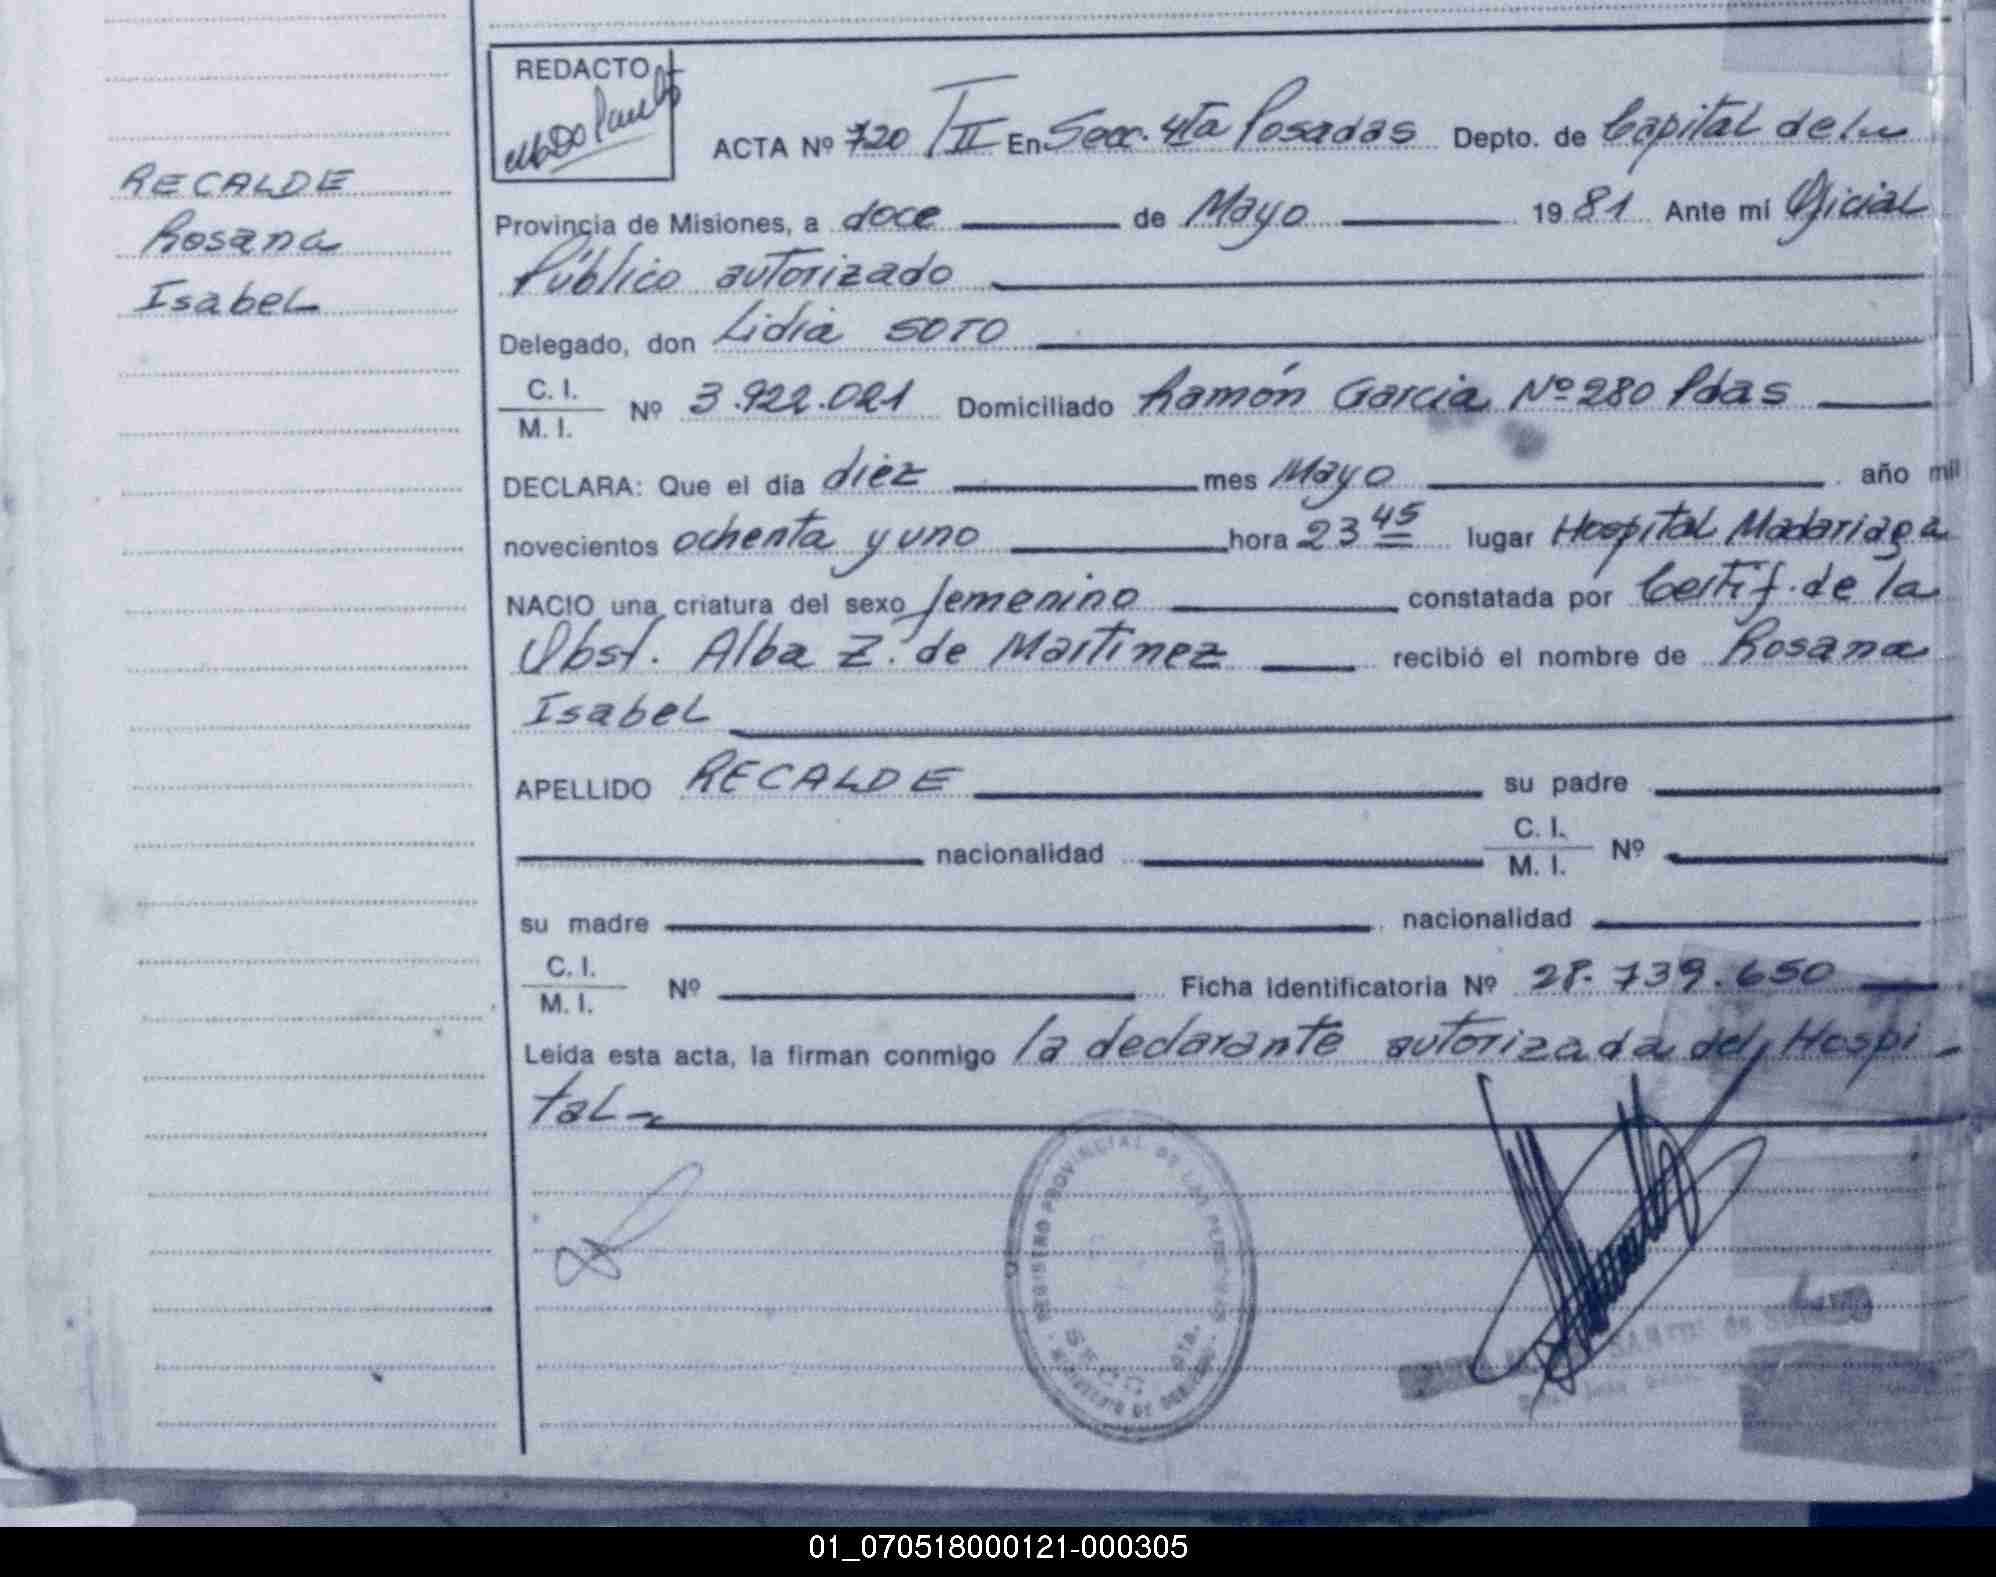 REDACTO
RECALDE
Rosana
Isabel
ACTA Nº 720 /II En Secc. 4ta Posadas Depto. de Capital de la
Provincia de Misiones, a doce de Mayo 1981 Ante mí Oficial
Público autorizado
Delegado, don Lidia SOTO
C. I.
M. I. Nº 3.922.021 Domiciliado Ramón Garcia Nº 280 Pdas
DECLARA: Que el día diez mes Mayo año mil
novecientos ochenta y uno hora 23 45 lugar Hospital Madariaga
NACIO una criatura del sexo femenino constatada por Certif. de la
Obst. Alba Z. de Martinez recibió el nombre de Rosana
Isabel
APELLIDO RECALDE su padre
nacionalidad C. I. M. I. Nº
su madre nacionalidad
C. I.
M. I. Nº Ficha identificatoria Nº 28.739.650
Leída esta acta, la firman conmigo la declarante autorizada del Hospi-
tal
REGISTRO PROVINCIAL DE LAS PERSONAS
SECC. 4TA.
MINISTERIO DE GOBIERNO
01_070518000121-000305